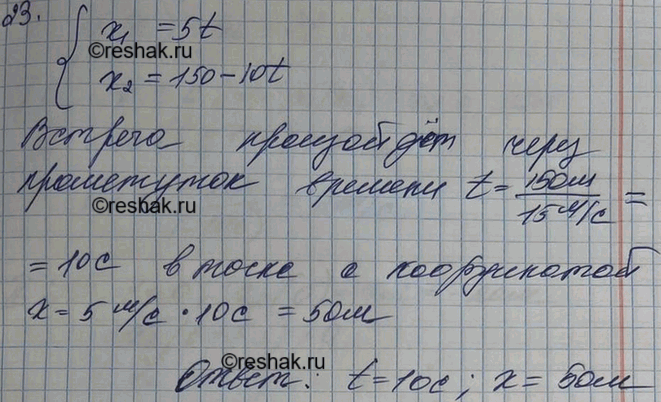 23.
x₁ = 5t
©reshak.ru
x₂ = 150 - 10t
Встреча произойдёт через
промежуток времени t = 150м / 15 м/с =
©reshak.ru
= 10с в точке с координатой
x = 5 м/с · 10с = 50м
©reshak.ru
Ответ: t = 10с; x = 50м